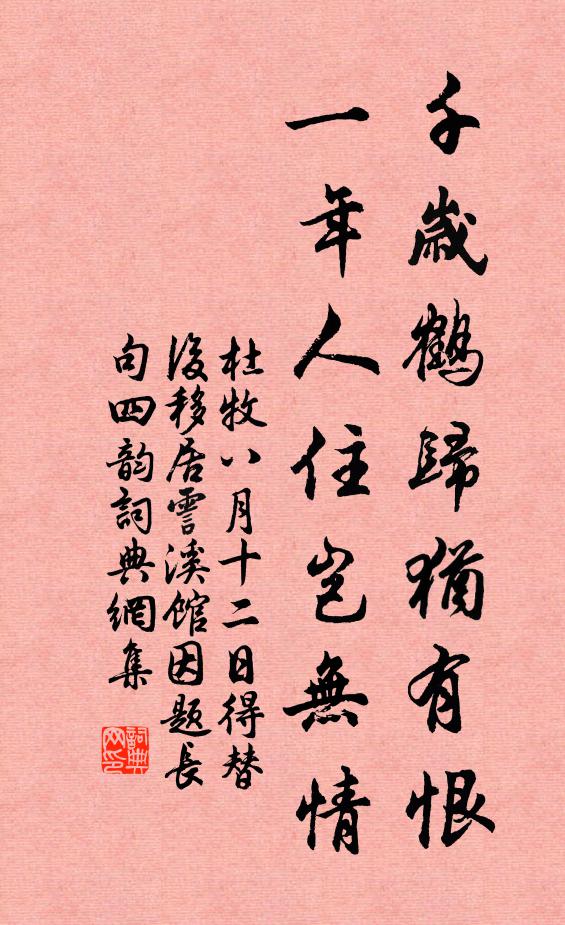 千歲鶴歸猶有恨
一年人住岂無情
杜牧八月十二日得替
後移居霅溪館因題長
句四韵詞典網集
詞典
网印